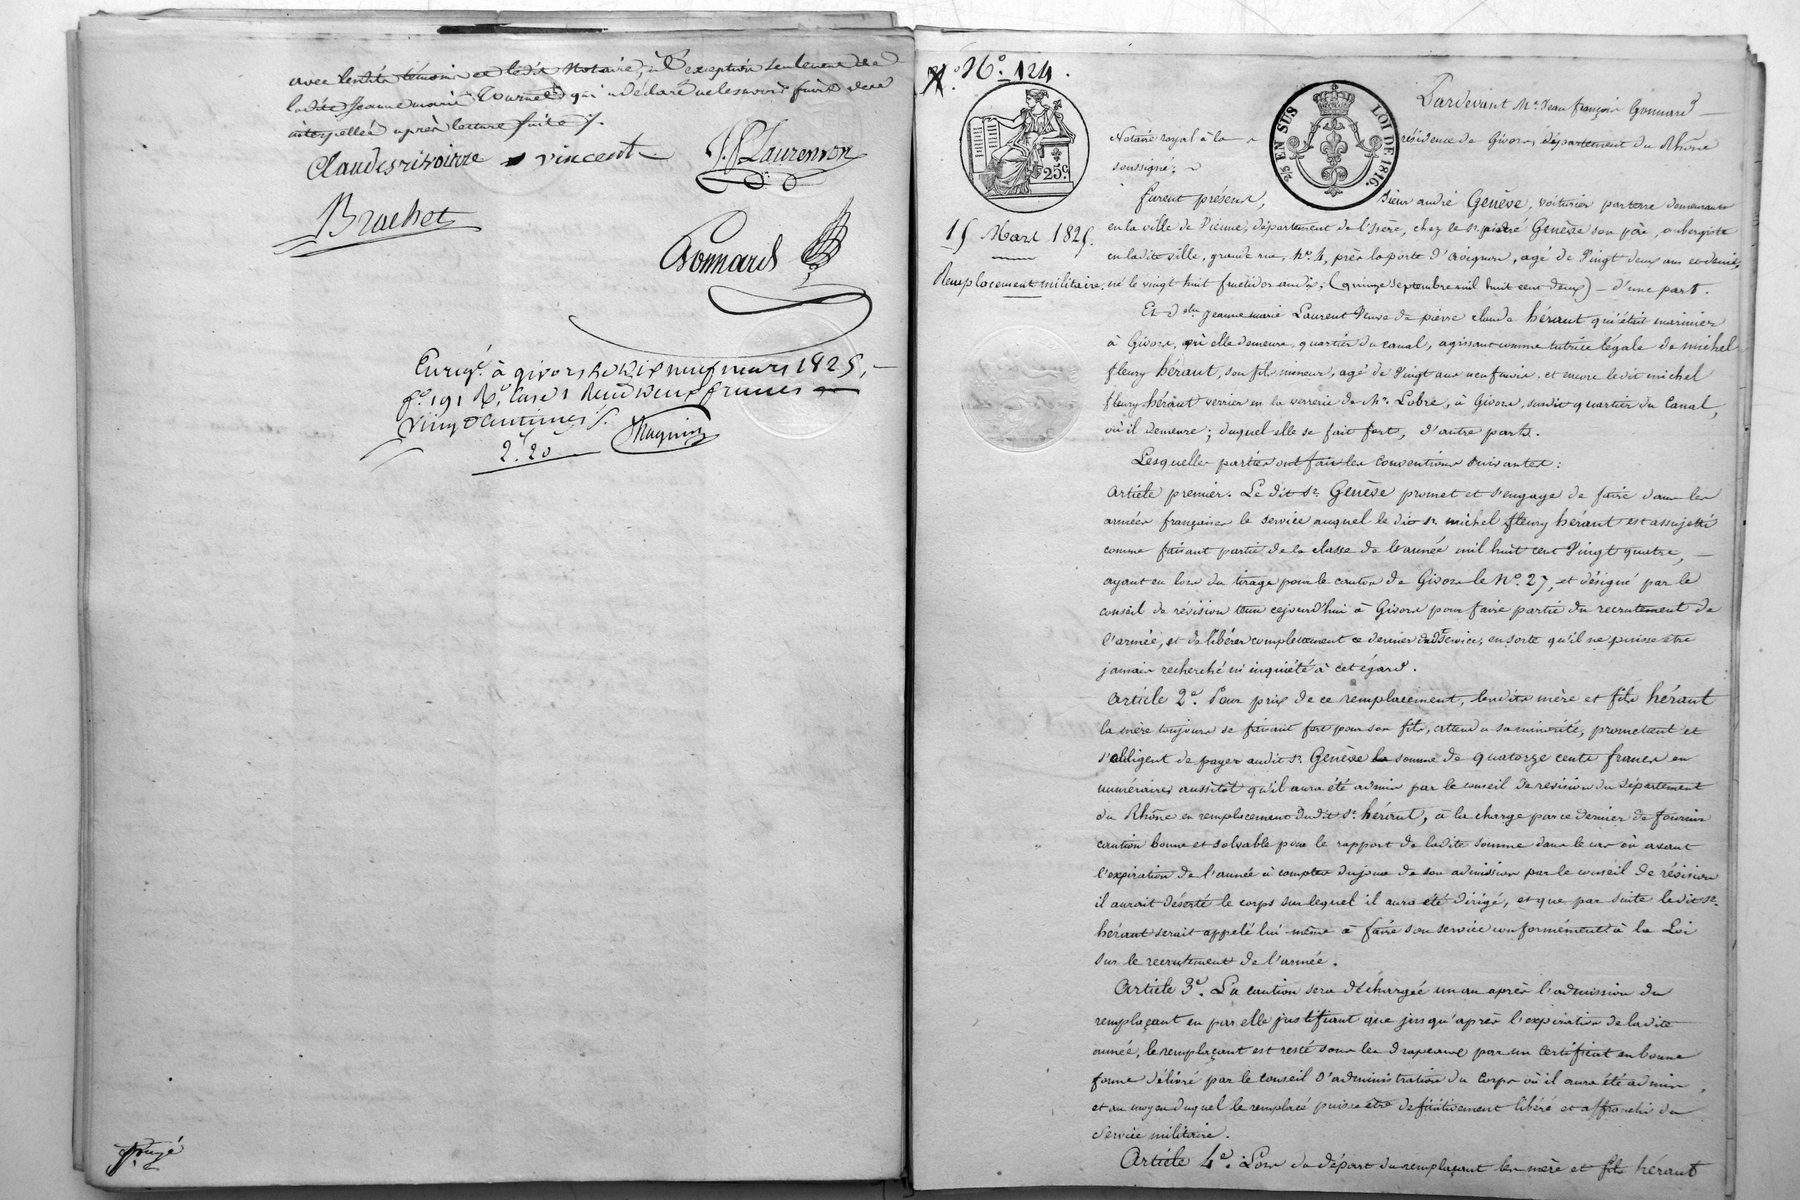 avec lesdits témoins et ledit Notaire, à l'exception seulement de
ladite Jeanne marie Tournel qui a déclaré ne le savoir faire de ce
interpellée après lecture faite ./.
Claudesrivoirre vincent J.P. Laurenson
Brachet
Gonnard
Enregé. à givors le dix neuf mars 1825,
fo. 191 Ro. case 1 Reçu deux francs
vingt centimes ./.
2.20
No. 124.
25c.
25 EN SUS
LOI DE 1816.
15 Mars 1825.
Remplacement militaire.
Pardevant Me. Jean françois Gonnard
Notaire royal à la résidence de Givors département du Rhône
soussigné;
furent présens,
Sieur andré Genève, voiturier par terre demeurant
en la ville de Vienne, département de l'Isère, chez le Sr. pierre Genève son père, aubergiste
en ladite ville, grande rue, No. 4, près la porte d'avignon, agé de Vingt deux ans et demi,
né le vingt huit fructidor an dix; (quinze septembre mil huit cent deux) — d'une part.
Et dlle. Jeanne marie Laurent Veuve de pierre claude héraut qui était marinier
à Givors, où elle demeure, quartier du canal, agissant comme tutrice légale de michel
fleury héraut, son fils mineur, agé de Vingt ans neuf mois, et encore ledit michel
fleury héraut verrier en la verrerie de Mr. Lobre, à Givors, susdit quartier du Canal,
où il demeure; duquel elle se fait fort, d'autre part.
Lesquelles parties ont fait les conventions suivantes:
article premier. Le dit Sr. Genève promet et s'engage de faire dans les
armées françaises le service auquel le dit Sr. michel fleury héraut est assujetti
comme faisant partie de la classe de l'année mil huit cent Vingt quatre, —
ayant eu lors du tirage pour le canton de Givors le No. 27, et désigné par le
conseil de révision tenu cejourd'hui à Givors pour faire partie du recrutement de
l'armée, et de libérer complettement ce dernier dudt. service, en sorte qu'il ne puisse être
jamais recherché ni inquiété à cet égard.
Article 2e. Pour prix de ce remplacement, lesdits mère et fils héraut
la mère toujours se faisant fort pour son fils, attendu sa minorité, promettent et
s'obligent de payer audit Sr. Genève la somme de quatorze cents francs en
numéraires aussitôt qu'il aura été admis par le conseil de révision du département
du Rhône en remplacement dudit Sr. héraut, à la charge par ce dernier de fournir
caution bonne et solvable pour le rapport de ladite somme dans le cas où avant
l'expiration de l'année à compter du jour de son admission par le conseil de révision
il aurait déserté le corps sur lequel il aura été dirigé, et que par suite ledit Sr.
héraut serait appelé lui-même à faire son service conformément à la Loi
sur le recrutement de l'armée.
Article 3e. La caution sera déchargée un an après l'admission du
remplaçant en par elle justifiant que jusqu'après l'expiration de ladite
année, le remplaçant est resté sous les drapeaux par un certificat en bonne
forme délivré par le conseil d'administration du corps où il aura été admis,
et au moyen duquel le remplacé puisse être définitivement libéré et affranchi du
service militaire.
Article 4e. Lors du départ du remplaçant les mère et fils héraut